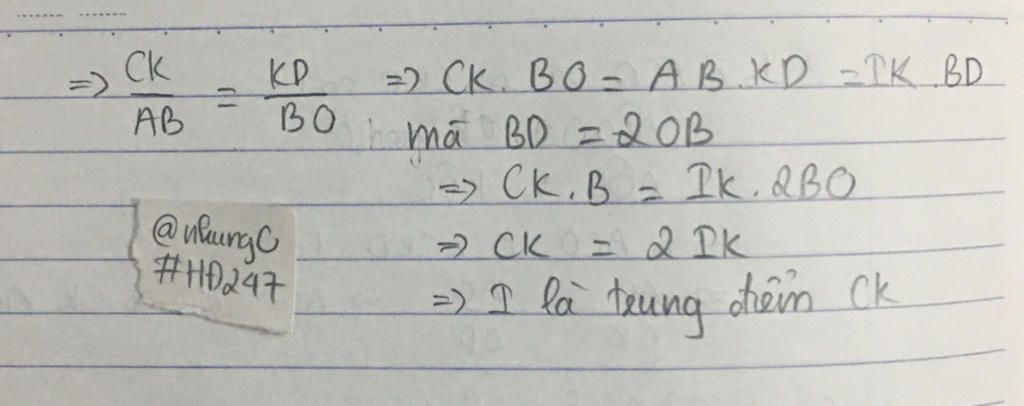 => CK/AB = KD/BO => CK. BO = AB.KD = IK.BD
mà BD = 2OB
=> CK.B = IK.2BO
=> CK = 2IK
=> I là trung điểm CK
@nhungC
#HĐ247